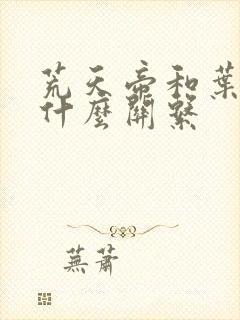 荒天帝和葉
什麼關繫
蕪蕭